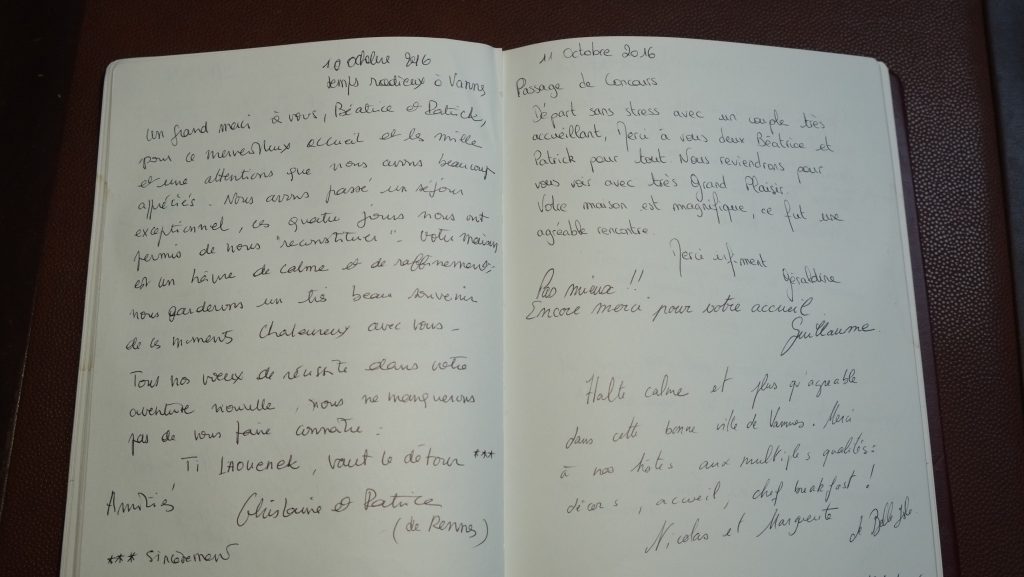 10 octobre 2016
temps radieux à Vannes
Un grand merci à vous, Béatrice et Patrick,
pour ce merveilleux accueil et les mille
et une attentions que nous avons beaucoup
appréciés. Nous avons passé un séjour
exceptionnel, ces quatre jours nous ont
permis de nous "reconstituer". Votre maison
est un hâvre de calme et de raffinement;
nous garderons un très beau souvenir
de ces moments chaleureux avec vous -
Tous nos voeux de réussite dans votre
aventure nouvelle, nous ne manquerons
pas de vous faire connaître :
Ti LAOUENEK, vaut le détour ***
Amitiés
Ghislaine et Patrice
(de Rennes)
*** Sincèrement
11 Octobre 2016
Passage de Concours
Départ sans stress avec un couple très
accueillant, Merci à vous deux Béatrice et
Patrick pour tout Nous reviendrons pour
vous voir avec très Grand Plaisir.
Votre maison est magnifique, ce fut une
agréable rencontre.
Merci infiment
Géraldine
Pas mieux !!
Encore merci pour votre accueil
Guillaume
Halte calme et plus qu'agréable
dans cette bonne ville de Vannes. Merci
à nos hôtes aux multiples qualités:
décors, accueil, chef breakfast !
Nicolas et Marguerite
de Belle Isle.